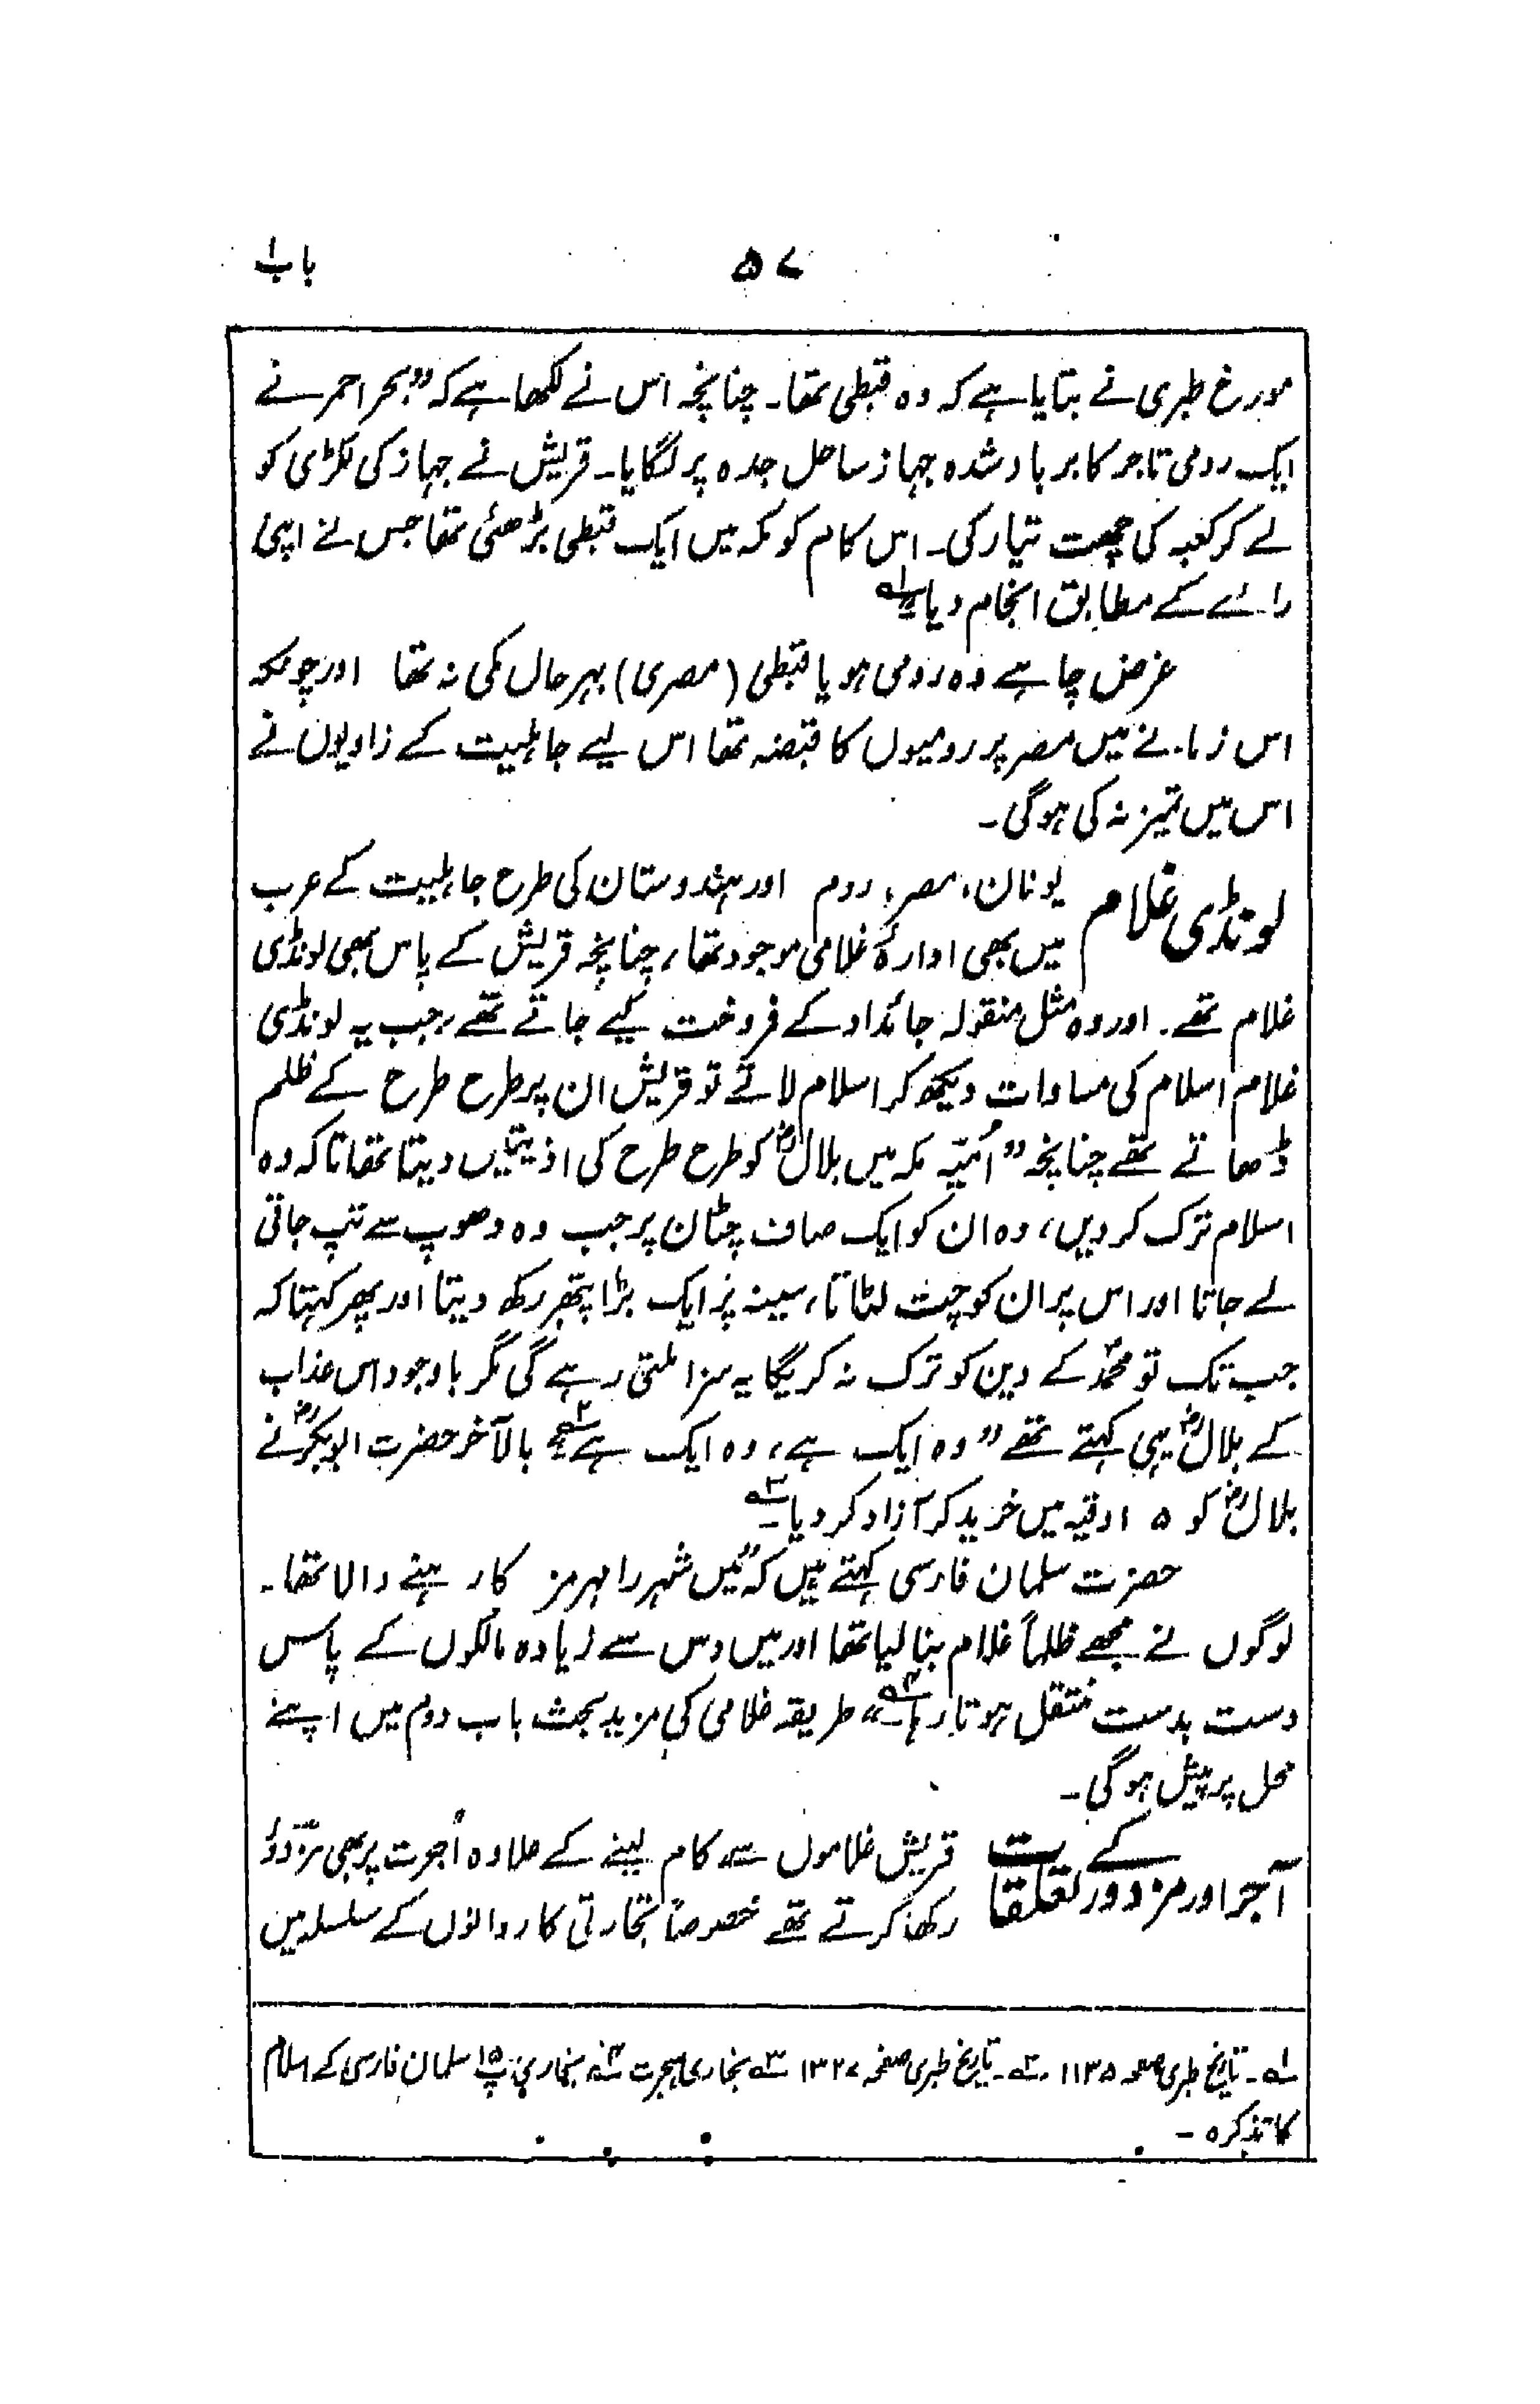 باب۱
۵۷
مورخ طبری نے بتایا ہے کہ وہ قبطی تھا۔ چنانچہ اس نے لکھا ہے کہ "بحر احمر نے
ایک رومی تاجر کا برباد شدہ جہاز ساحل جدہ پر لگایا۔ قریش نے جہاز کی لکڑی کو
لے کر کعبہ کی چھت تیار کی۔ اس کام کو مکہ میں ایک قبطی بڑھئی تھا جس نے اپنی
رائے کے مطابق انجام دیا۔"۱؎
غرض چاہے وہ رومی ہو یا قبطی (مصری) بہرحال مکی نہ تھا اور چونکہ
اس زمانے میں مصر پر رومیوں کا قبضہ تھا اس لیے جاہلیت کے راویوں نے
اس میں تمیز نہ کی ہوگی۔
لونڈی غلام
یونان، مصر، روم اور ہندوستان کی طرح جاہلیت کے عرب
میں بھی ادارہ غلامی موجود تھا، چنانچہ قریش کے پاس بھی لونڈی
غلام تھے۔ اور وہ مثل منقولہ جائداد کے فروخت کیے جاتے تھے، جب یہ لونڈی
غلام اسلام کی مساوات دیکھ کر اسلام لاتے تو قریش ان پر طرح طرح کے ظلم
ڈھاتے تھے چنانچہ "اُمیّہ مکہ میں بلالؓ کو طرح طرح کی اذیتیں دیتا تھا تاکہ وہ
اسلام ترک کر دیں، وہ ان کو ایک صاف چٹان پر جب وہ دھوپ سے تپ جاتی
لے جاتا اور اس پر ان کو چت لٹاتا، سینہ پر ایک بڑا پتھر رکھ دیتا اور پھر کہتا کہ
جب تک تو محمدؐ کے دین کو ترک نہ کریگا یہ سزا ملتی رہے گی مگر باوجود اس عذاب
کے بلالؓ یہی کہتے تھے "وہ ایک ہے، وہ ایک ہے"۲؎ بالآخر حضرت ابوبکرؓ نے
بلالؓ کو ۵ اوقیہ میں خرید کر آزاد کر دیا۔۳؎
حضرت سلمان فارسی کہتے ہیں کہ "میں شہر رامہرمز کا رہنے والا تھا۔
لوگوں نے مجھے ظلماً غلام بنا لیا تھا اور میں دس سے زیادہ مالکوں کے پاس
دست بدست منتقل ہوتا رہا۔۴؎" طریقہ غلامی کی مزید بحث باب دوم میں اپنے
محل پر پیش ہوگی۔
آجر اور مزدور کے تعلقات
قریش غلاموں سے کام لینے کے علاوہ اُجرت پر بھی مزدور
رکھا کرتے تھے خصوصاً تجارتی کاروانوں کے سلسلہ میں
۱؎۔ تاریخ طبری صفحہ ۱۱۳۵ ۲؎۔ تاریخ طبری صفحہ ۱۳۲۷ ۳؎ بخاری ہجرت ۴؎ بخاری پ ۱۵ سلمان فارسی کے اسلام
کا تذکرہ۔